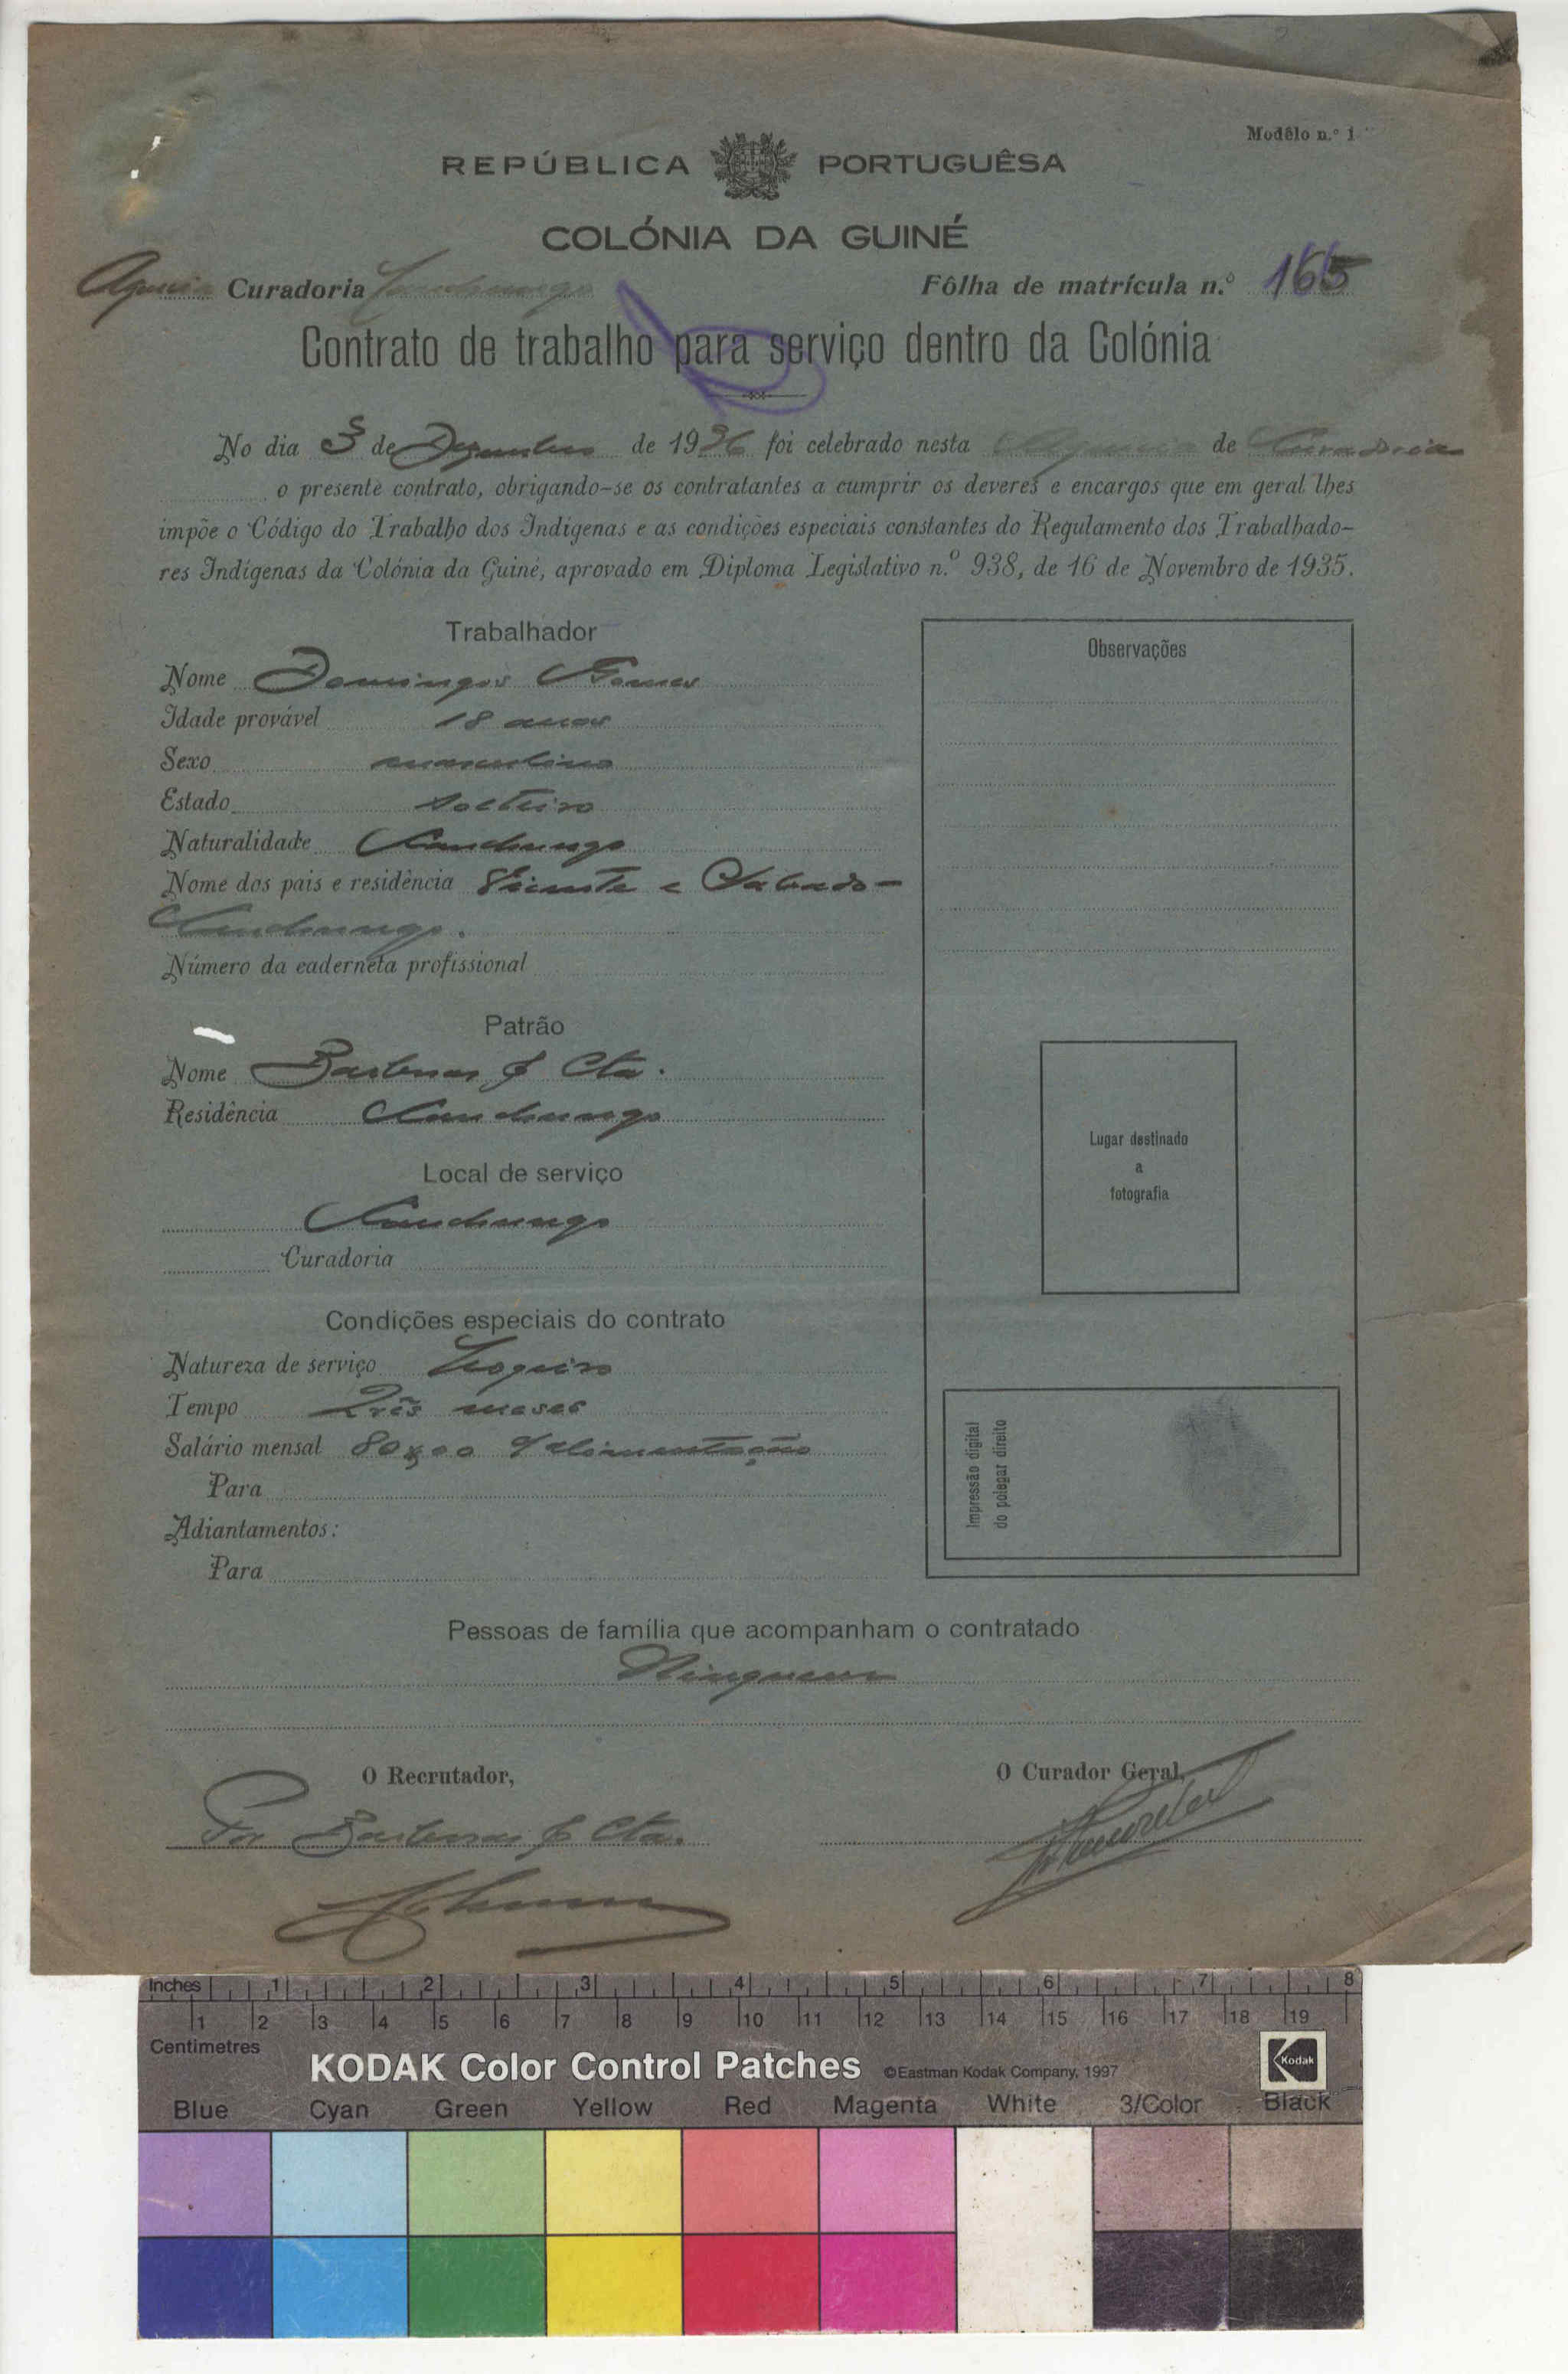 Modêlo n.º 1
REPÚBLICA PORTUGUÊSA
COLÓNIA DA GUINÉ
Agencia Curadoria Canchungo Fôlha de matrícula n.º 165
Contrato de trabalho para serviço dentro da Colónia
No dia 3 de Dezembro de 1936 foi celebrado nesta Agencia de Curadoria
o presente contrato, obrigando-se os contratantes a cumprir os deveres e encargos que em geral lhes
impõe o Código do Trabalho dos Indígenas e as condições especiais constantes do Regulamento dos Trabalhado-
res Indígenas da Colónia da Guiné, aprovado em Diploma Legislativo n.º 938, de 16 de Novembro de 1935.
Trabalhador
Nome Domingos Gomes
Idade provável 18 anos
Sexo masculino
Estado solteiro
Naturalidade Canchungo
Nome dos pais e residência Vicente e Sabado-
Canchungo.
Número da caderneta profissional
Patrão
Nome Barbosas & Cta.
Residência Canchungo
Local de serviço
Canchungo
Curadoria
Condições especiais do contrato
Natureza de serviço
Tempo Três meses
Salário mensal 80$00 Alimentação
Para
Adiantamentos:
Para
Observações
Lugar destinado
a
fotografia
Impressão digital
do polegar direito
Pessoas de família que acompanham o contratado
Ninguem
O Recrutador,
Por Barbosas & Cta.
O Curador Geral,
Inches 1 2 3 4 5 6 7 8
1 2 3 4 5 6 7 8 9 10 11 12 13 14 15 16 17 18 19
Centimetres
KODAK Color Control Patches ©Eastman Kodak Company, 1997 Kodak
Blue Cyan Green Yellow Red Magenta White 3/Color Black